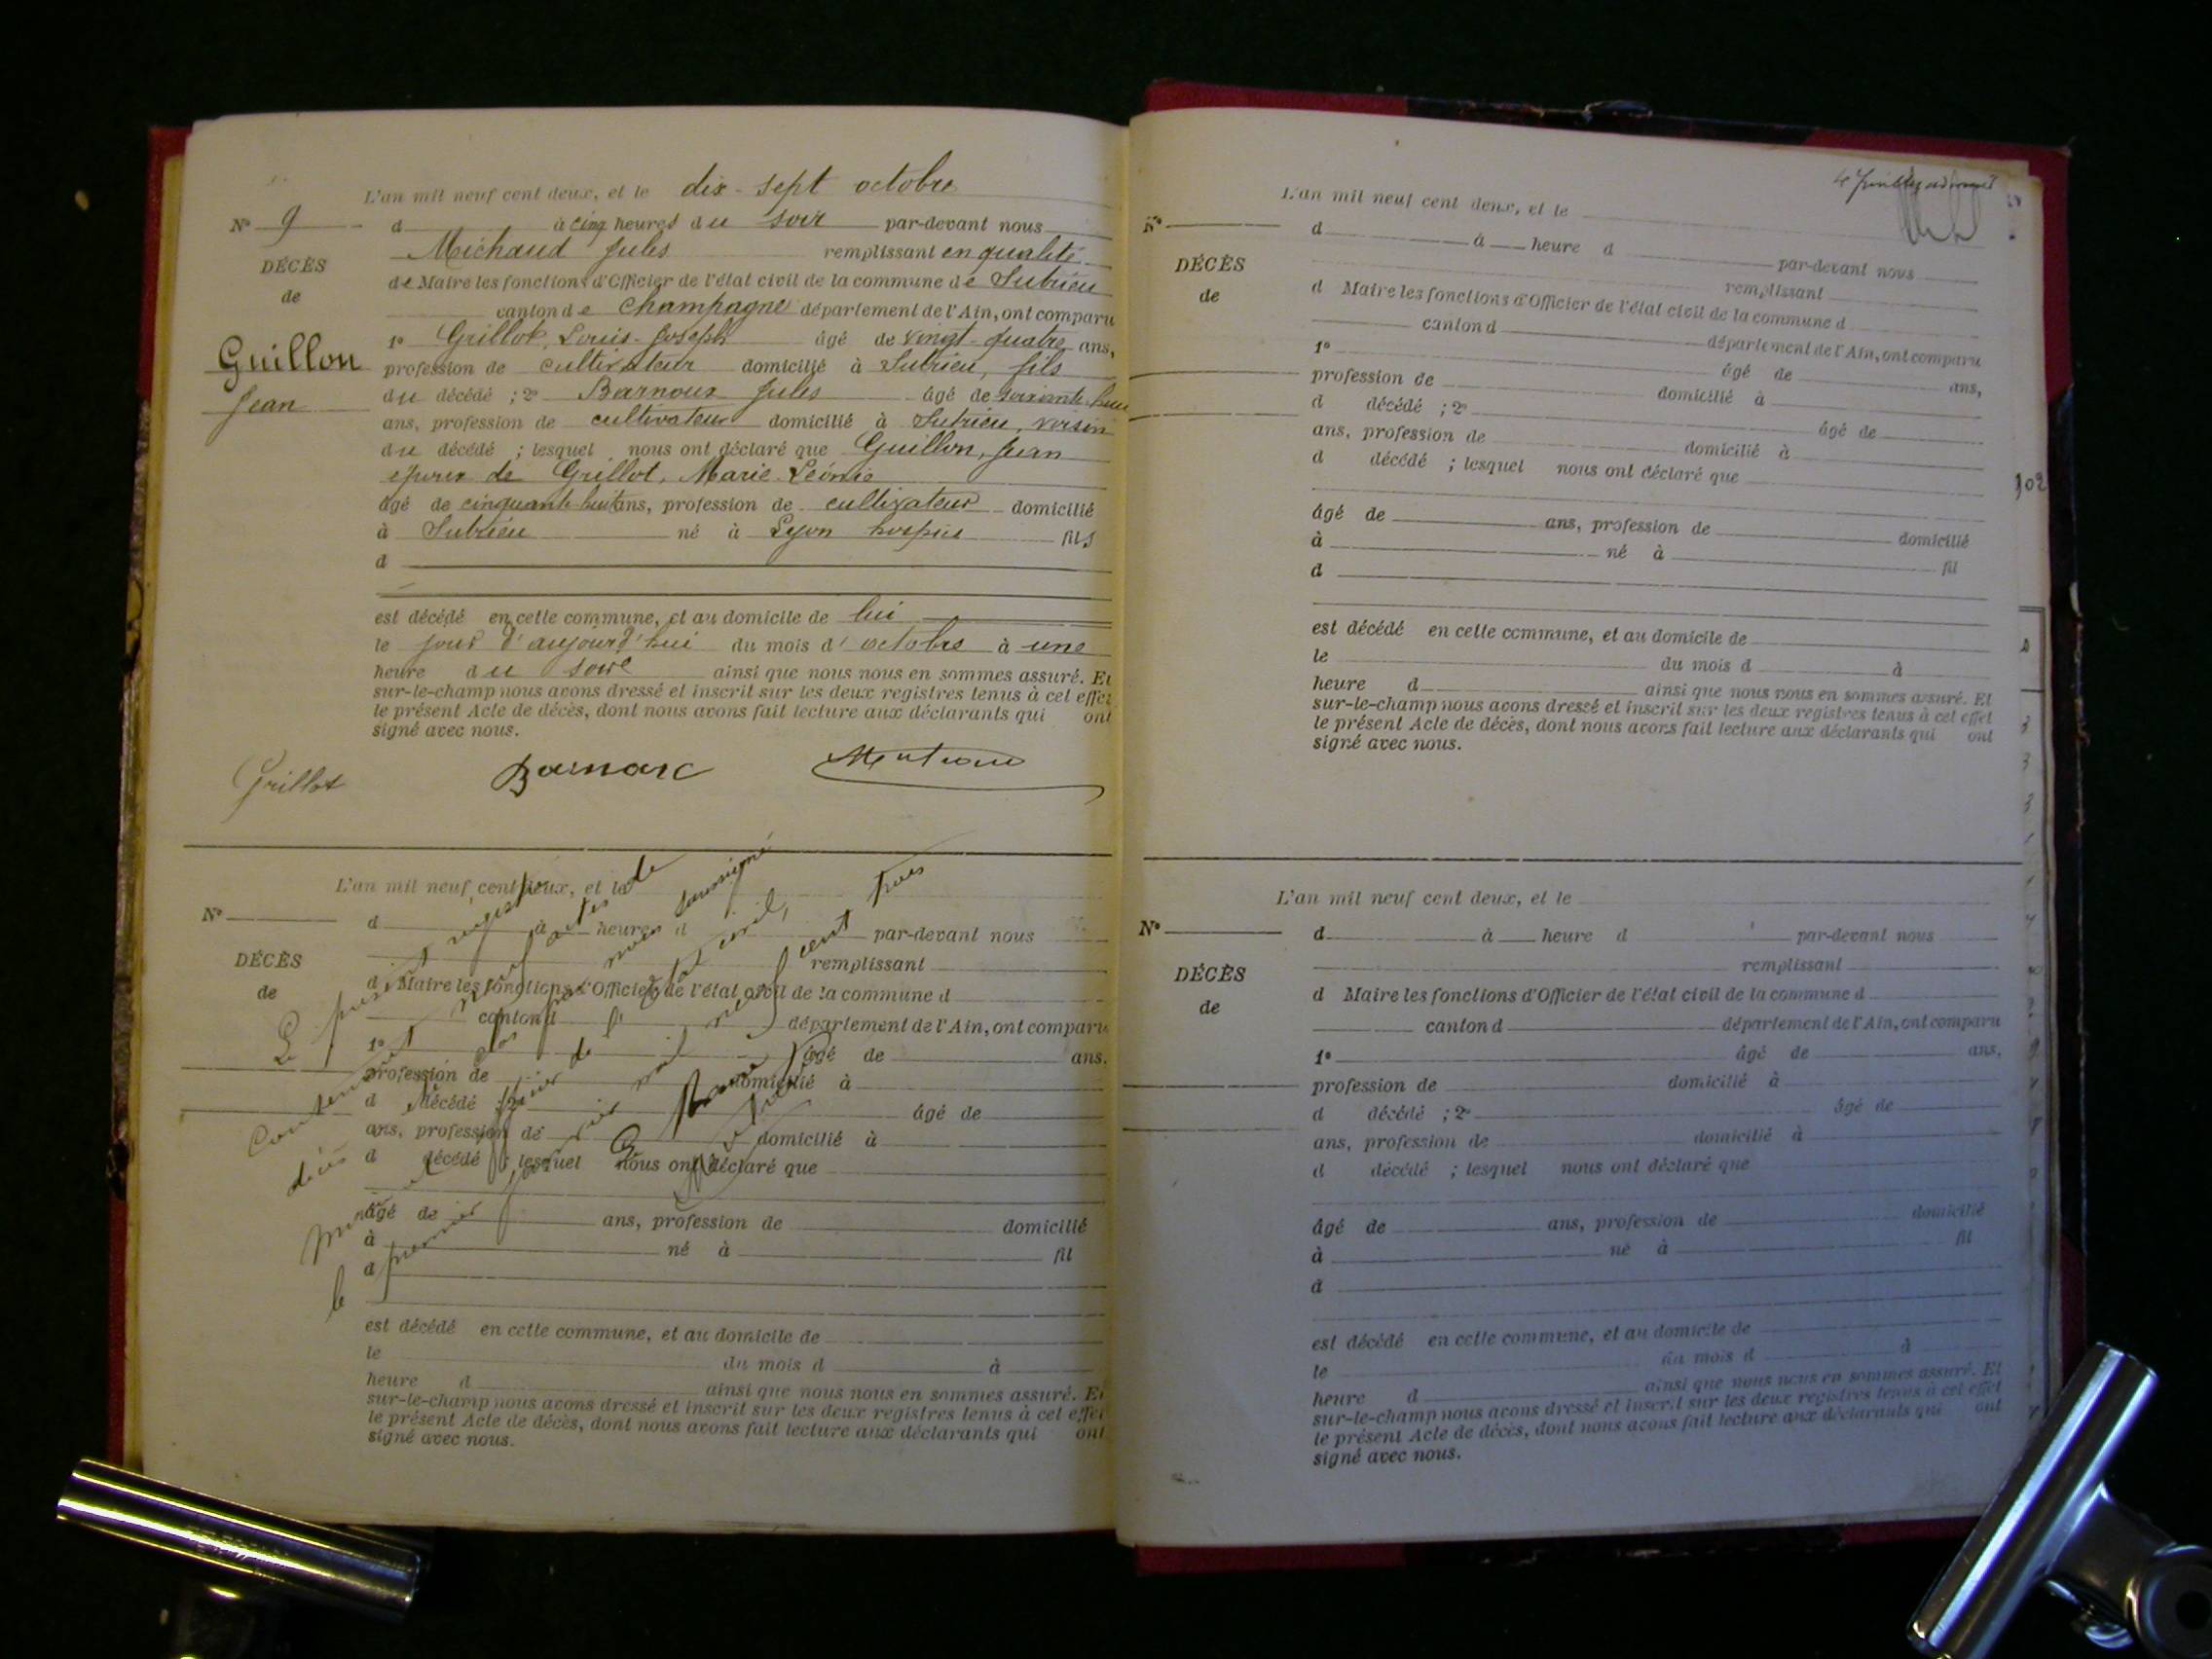 L'an mil neuf cent deux, et le dix-sept octobre
N° 9 d à cinq heures du soir par-devant nous
Michaud Jules remplissant en qualité
DÉCÈS
de Maire les fonctions d'Officier de l'état civil de la commune de Sutrieu
de
canton de Champagne département de l'Ain, ont comparu
1° Grillot, Louis-Joseph âgé de vingt-quatre ans,
Guillon
profession de cultivateur domicilié à Sutrieu, fils
Jean
du décédé ; 2° Jules âgé de
ans, profession de cultivateur domicilié à Sutrieu, voisin
du décédé ; lesquel nous ont déclaré que Guillon, Jean
époux de Grillot, Marie-Léonie
âgé de cinquante-huit ans, profession de cultivateur domicilié
à Sutrieu né à Lyon hospice fils
d
est décédé en cette commune, et au domicile de lui
le jour d'aujourd'hui du mois d'octobre à une
heure du soir ainsi que nous nous en sommes assuré. Et
sur-le-champ nous avons dressé et inscrit sur les deux registres tenus à cet effet
le présent Acte de décès, dont nous avons fait lecture aux déclarants qui ont
signé avec nous.
Grillot
L'an mil neuf cent deux, et le
N° d à heure d par-devant nous
remplissant
DÉCÈS
d Maire les fonctions d'Officier de l'état civil de la commune d
de
canton d département de l'Ain, ont comparu
1° âgé de ans.
profession de domicilié à
d décédé ; 2° âgé de
ans, profession de domicilié à
d décédé ; lesquel nous ont déclaré que
âgé de ans, profession de domicilié
à né à fil
d
est décédé en cette commune, et au domicile de
le du mois d à
heure d ainsi que nous nous en sommes assuré. Et
sur-le-champ nous avons dressé et inscrit sur les deux registres tenus à cet effet
le présent Acte de décès, dont nous avons fait lecture aux déclarants qui ont
signé avec nous.
Le présent registre
contenant neuf actes de
décès a été clos par nous soussigné
maire et officier de l'état civil,
le premier janvier mil neuf cent trois
L'an mil neuf cent deux, et le
N° d à heure d par-devant nous
DÉCÈS
remplissant
de
d Maire les fonctions d'Officier de l'état civil de la commune d
canton d département de l'Ain, ont comparu
1° âgé de ans,
profession de domicilié à
d décédé ; 2° âgé de
ans, profession de domicilié à
d décédé ; lesquel nous ont déclaré que
âgé de ans, profession de domicilié
à né à fil
d
est décédé en cette commune, et au domicile de
le du mois d à
heure d ainsi que nous nous en sommes assuré. Et
sur-le-champ nous avons dressé et inscrit sur les deux registres tenus à cet effet
le présent Acte de décès, dont nous avons fait lecture aux déclarants qui ont
signé avec nous.
L'an mil neuf cent deux, et le
N° d à heure d par-devant nous
remplissant
DÉCÈS
d Maire les fonctions d'Officier de l'état civil de la commune d
de
canton d département de l'Ain, ont comparu
1° âgé de ans,
profession de domicilié à
d décédé ; 2° âgé de
ans, profession de domicilié à
d décédé ; lesquel nous ont déclaré que
âgé de ans, profession de domicilié
à né à fil
d
est décédé en cette commune, et au domicile de
le du mois d à
heure d ainsi que nous nous en sommes assuré. Et
sur-le-champ nous avons dressé et inscrit sur les deux registres tenus à cet effet
le présent Acte de décès, dont nous avons fait lecture aux déclarants qui ont
signé avec nous.